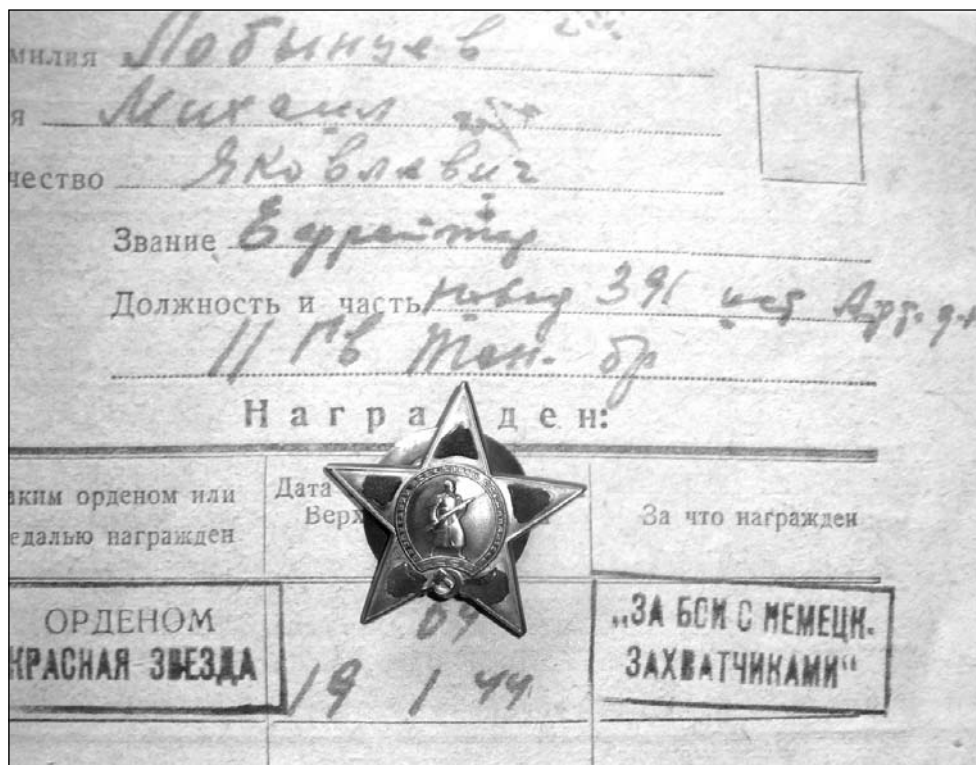 милия Лобынцев
я Михаил
чество Яковлевич
Звание Ефрейтор
Должность и часть Повоз 391 ист Арт. д-н
11 Гв Тан. бр
Награ ден:
аким орденом или
едалью награжден
Дата
Верх
За что награжден
ОРДЕНОМ
КРАСНАЯ ЗВЕЗДА
09
19 1 44
„ЗА БОИ С НЕМЕЦК.
ЗАХВАТЧИКАМИ“